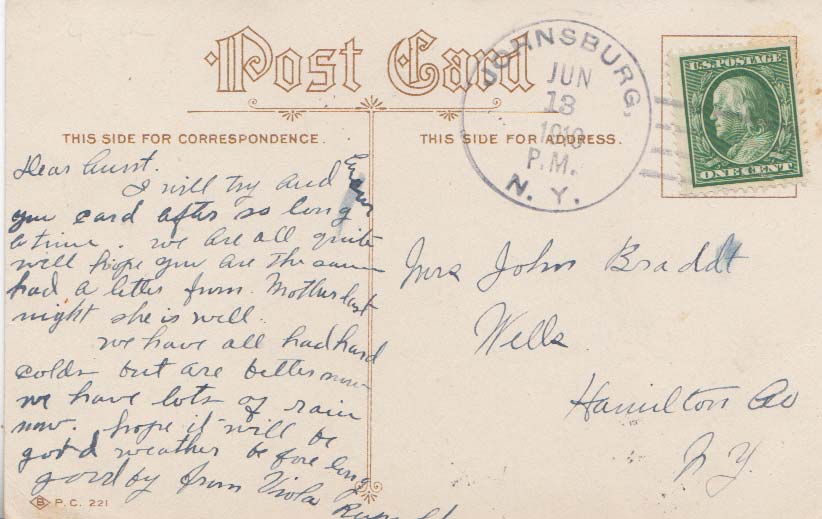 Post Card
JOHNSBURG,
JUN
13
P.M.
N. Y.
U.S. POSTAGE
ONE CENT
THIS SIDE FOR CORRESPONDENCE.
THIS SIDE FOR ADDRESS.
Dear Aunt.
I will try and
you card after so long
a time. we are all quite
well hope you are the same
had a letter from Mother last
night she is well.
we have all had hard
colds but are better now
we have lots of rain
now. hope it will be
good weather before long
good by from Viola
Mrs John Braddt
Wells
Hamilton Co
N Y.
B P.C. 221